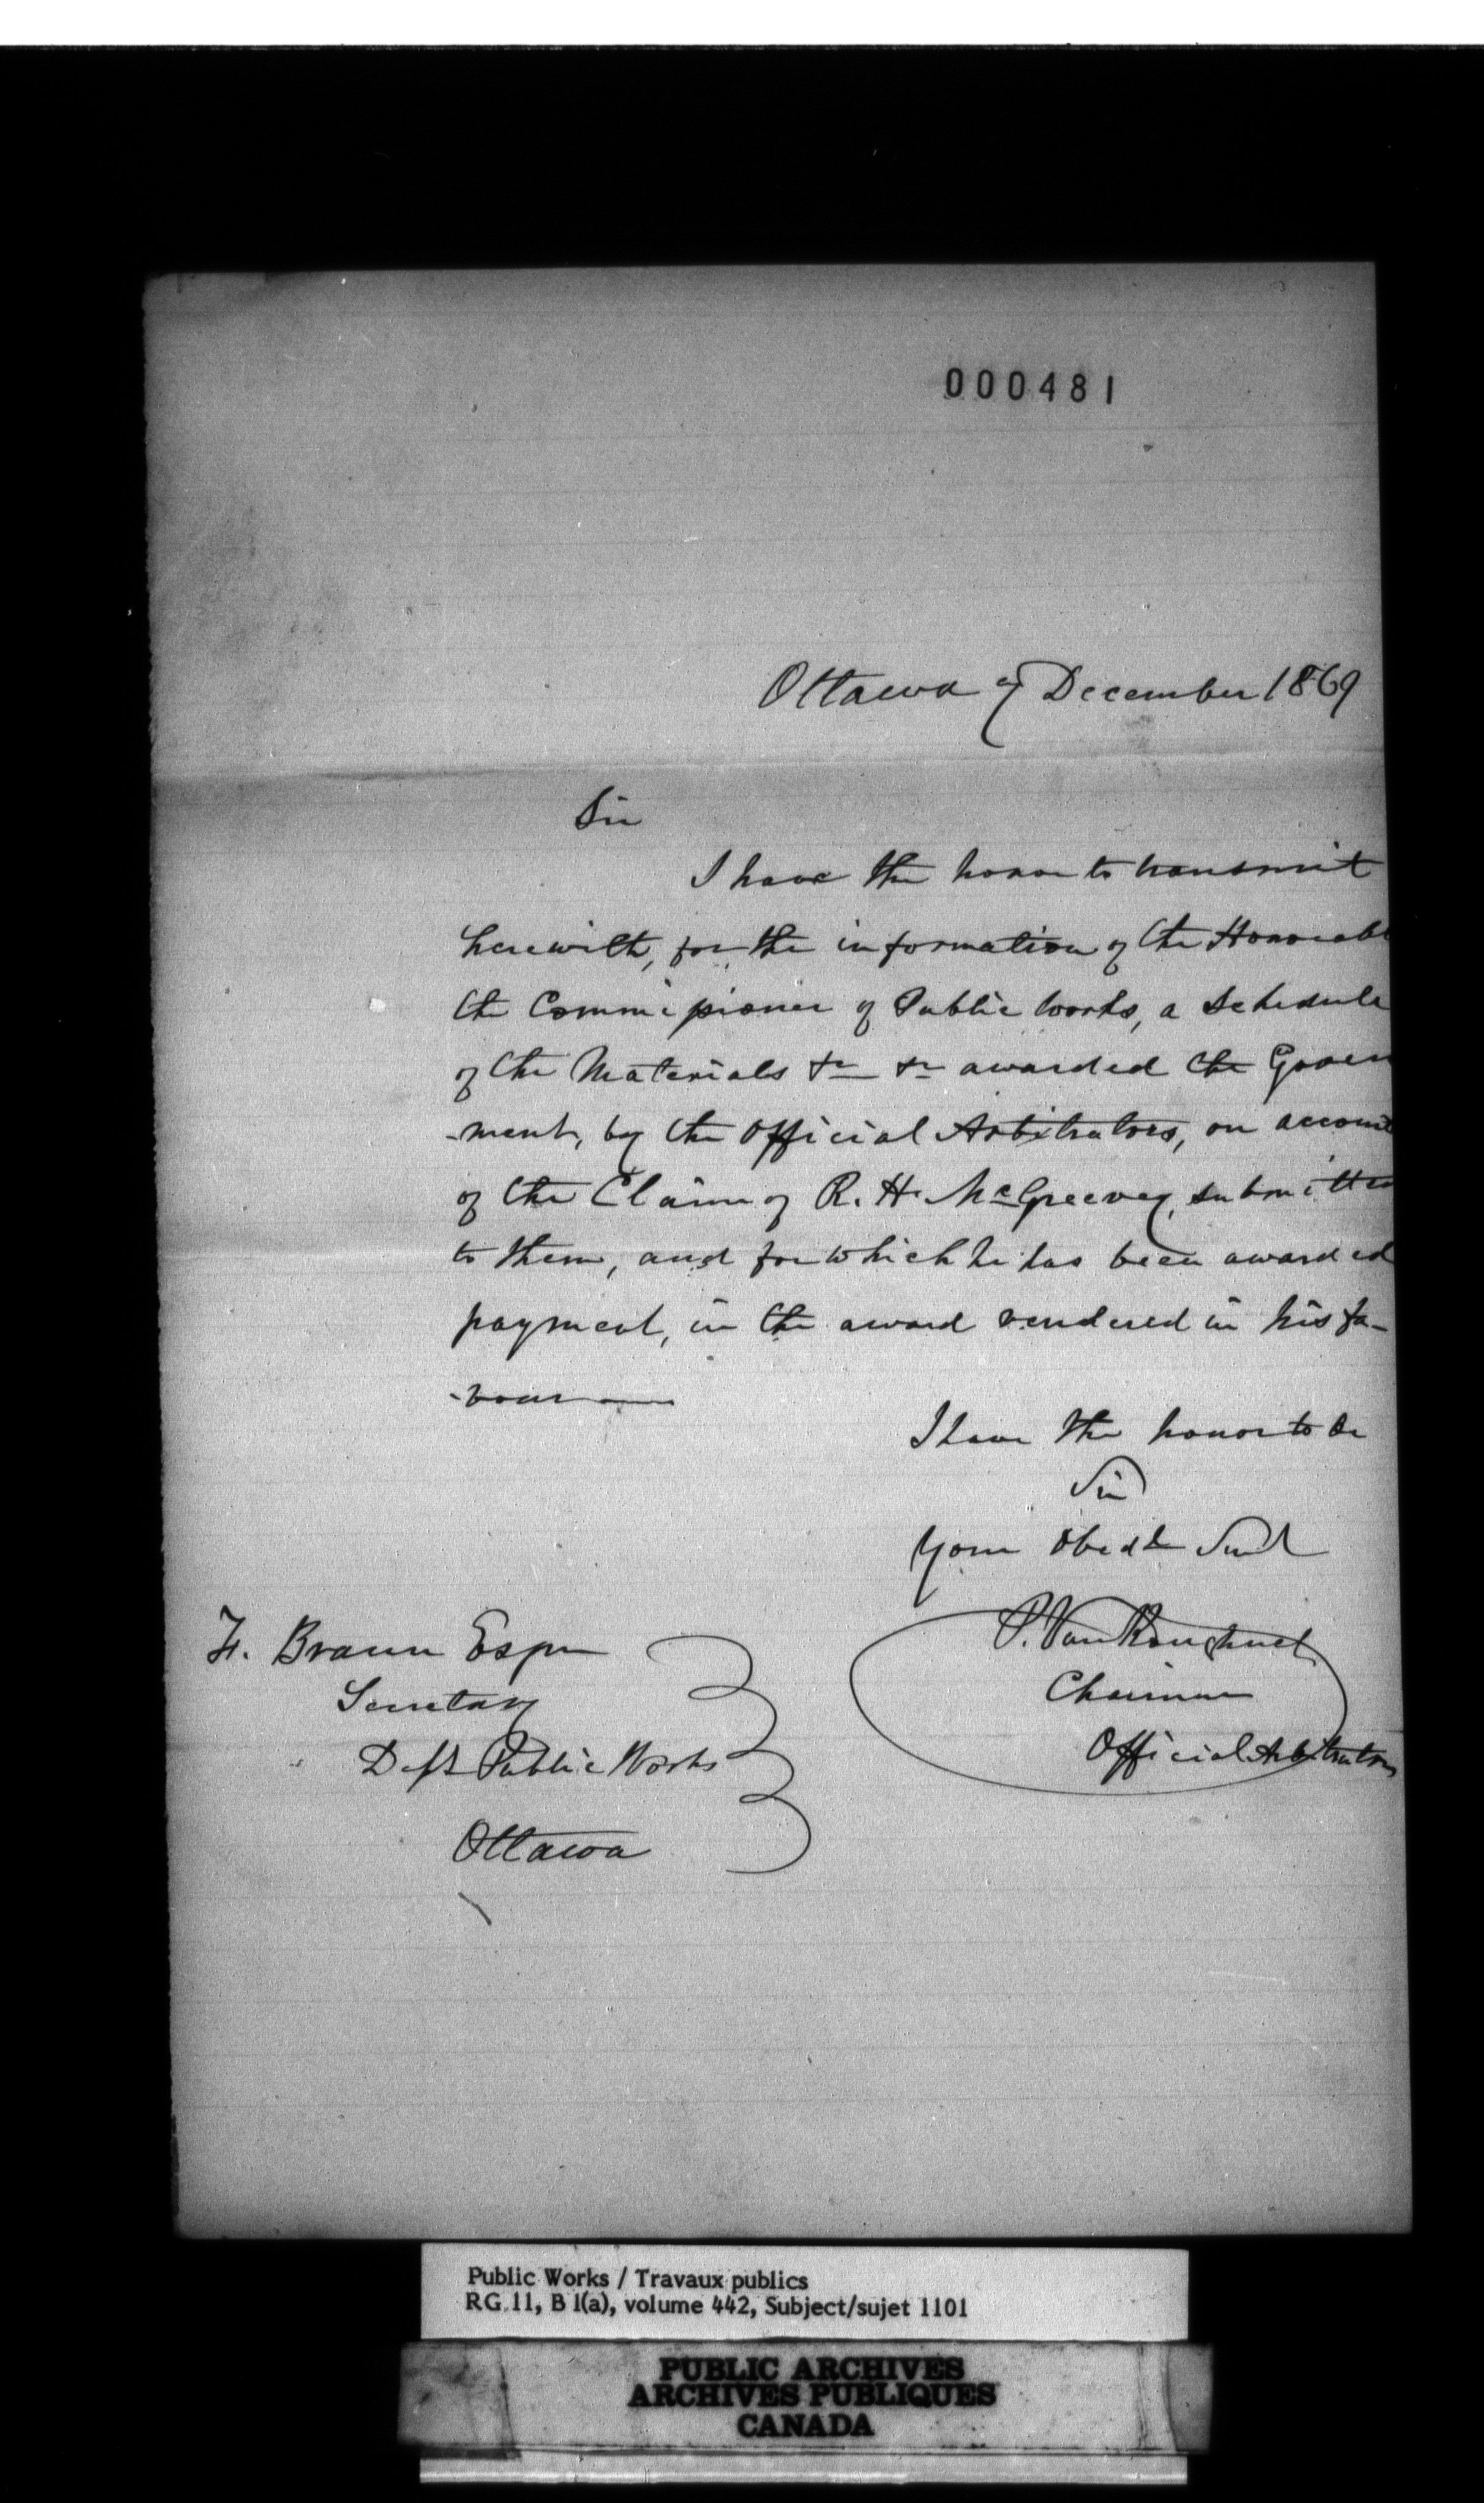 000481
Ottawa 7 December 1869
Sir
I have the honor to transmit
herewith, for the information of the Honorabl
the Commissioner of Public Works, a Schedule
of the Materials &c &c awarded the Govern
-ment, by the Official Arbitrators, on account
of the Claim of R. H. McGreevey, submitted
to them, and for which he has been awarded
payment, in the award rendered in his fa-
-vour
I have the honor to be
Sir
Your Obedt Servt
P. VanKoughnet
Chairman
Official Arbitrators
F. Braun Esqr
Secretary
Dept Public Works
Ottawa
Public Works / Travaux publics
RG 11, B 1(a), volume 442, Subject/sujet 1101
PUBLIC ARCHIVES
ARCHIVES PUBLIQUES
CANADA